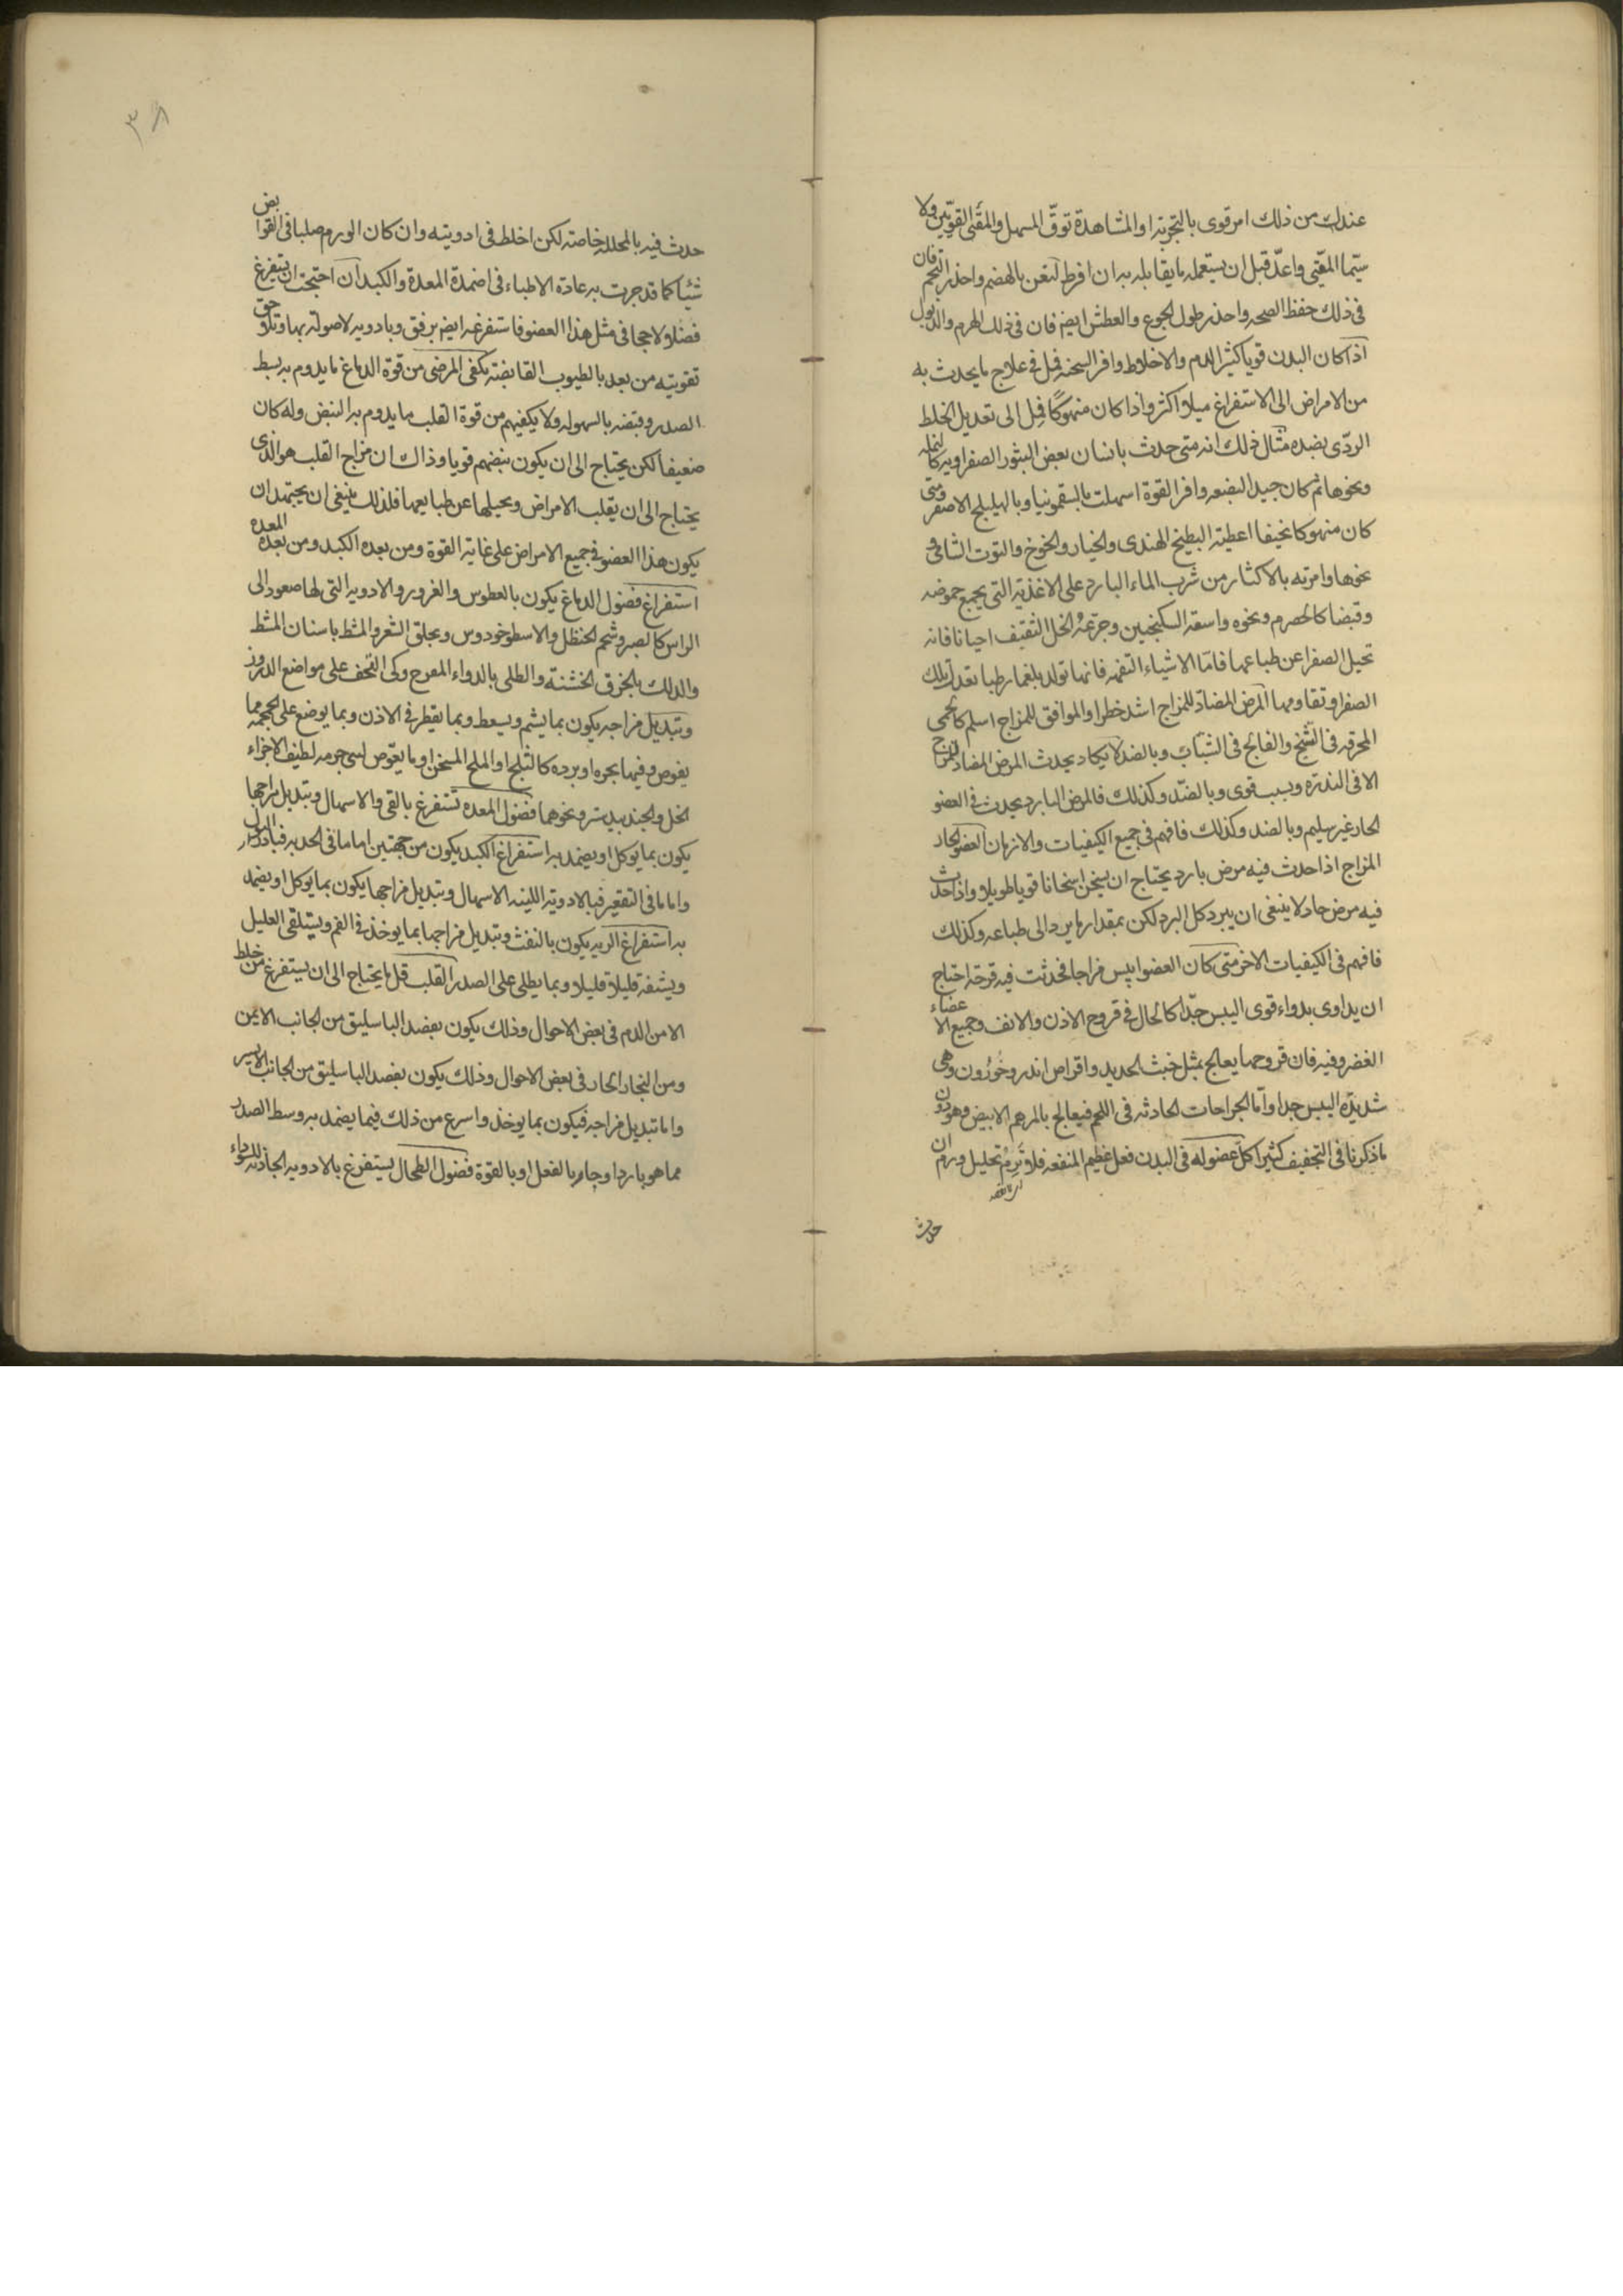 عندك من ذلك امر قوى بالتجربة او المشاهدة توقّ المسهل والمقئ القويّين ولا
سيّما المقيّى واعدّ قبل ان يستعمله ما يقابله به ان افرط لتعن بالهضم واحذر التخم فان
فى ذلك حفظ الصحه واحذر طول الجوع والعطش ايضا فان فى ذلك الهرم والذبول
اذا كان البدن قويا كثير الدم والاخلاط وافر السحنه فمل فى علاج ما يحدث به
من الامراض الى الاستفراغ ميلا اكثر واذا كان منهوكًا فمِل الى تعديل الخلط
الردّى بضده مثال ذلك انه متى حدث بانسان بعض البثور الصفراويه كالنمله
ونحوها ثم كان جيد البضعه وافر القوة اسهلت بالسقمونيا وبالهليلج الاصفر ومتى
كان منهوكا نحيفا اعطيته البطيخ الهندى والخيار والخوخ والتوت الشامى و
نحوها وامرته بالاكثار من شرب الماء البارد على الاغذية التى يجمع حموضه
وقبضا كالحصرم ونحوه واسقه السكنجبين وجرّعهُ الخل الثقيف احيانا فانه
تحيل الصفرا عن طباعها فامّا الاشياء التفهه فانها تولد بلغما رطبا تعدل تلك
الصفرا وتقاومها المرض المضادّ للمزاج اشد خطرا والموافق للمزاج اسلم كالحمى
المحرقه فى الشيخ والفالج فى الشباب وبالضد لا يكاد يحدث المرض المضاد للمزاج
الا فى الندرة وبسبب قوى وبالضدّ وكذلك فالمرض البارد يحدث فى العضو
الحار غير سليم وبالضد وكذلك فافهم فى جميع الكيفيات والازمان العضو الحاد
المزاج اذا حدث فيه مرض بارد يحتاج ان يسخن اسخانا قويا طويلا واذا حدث
فيه مرض حاد لا ينبغى ان يبرد كل البرد لكن بمقدار ما يرد الى طباعه وكذلك
فافهم فى الكيفيات الاخر متى كان العضو ايبس مزاجا فحدثت فيه قرحة احتاج
ان يداوى بدواء قوى اليبس جدّا كالحال فى قروح الاذن والانف وجميع الاعضاء
الغضروفيه فان قروحها يعالج بمثل خبث الحديد واقراص اندروخورُون وهى
شديدة اليبس جدا وامّا الجراحات الحادثه فى اللحم فيعالج بالمرهم الابيض وهو دون
ما ذكرنا فى التجفيف كثيرا كل عضو له فى البدن فعل عظيم المنفعه فلا تَرِمُ تحليل ورم ان
حدث
٣٨
حدث فيه بالمحلله خاصة لكن اخلط فى ادويته وان كان الورم صلبا فى القوابض
شيئا كما قد جرت به عادة الاطباء فى اضمدة المعدة والكبد ان احتجت ان يتفرغ
فضلا ولاحجا فى مثل هذا العضو فاستفرغه ايضا برفق وبادويه لا صولة بها وتلاحق
تقويته من بعد بالطيوب القابضة يكفى المرضى من قوة الدماغ ما يدوم به بسط
الصدر وقبضه بالسهوله ولا يكفيهم من قوة القلب ما يدوم به النبض وله كان
ضعيفا لكن يحتاج الى ان يكون نبضهم قويا وذاك ان مزاج القلب هو الذى
يحتاج الى ان يقلب الامراض ويحيلها عن طبايعها فلذلك ينبغى ان يجتهد ان
يكون هذا العضو فى جميع الامراض على غاية القوة ومن بعده الكبد ومن بعده المعده
استفراغ فضول الدماغ يكون بالعطوس والغرور والادويه التى لها صعود الى
الراس كالصبر وشحم الحنظل والاسطوخودوس وبحلق الشعر والمشط باسنان المشط
والدلك بالخرق الخشنة والطلى بالدواء المقرح وكى القحف على مواضع الدروز
وتبديل مزاجه يكون بما يشم ويسعط وبما يقطر فى الاذن وبما يوضع على الجمجمه مما
يغوص فيها بحره او برده كالثلج او الملح المسخن او ما يغوّص لشى جرمه لطيف الاجزاء
الخل والجندبيدستر ونحوهما فضول المعده تستفرغ بالقى والاسهال وتبديل مزاجها
يكون بما يوكل او يضمد به استفراغ الكبد يكون من جهتين اما ما فى الحدبه فبادرار البول
واما ما فى التقعير فبالادوية اللينه الاسهال وتبديل مزاجها يكون بما يوكل او يضمد
به استفراغ الريه يكون بالنفث وتبديل مزاجها بما يوخذ فى الفم ويستلقى العليل
ويشفه قليلا قليلا وبما يطلى على الصدر القلب قل ما يحتاج الى ان يستفرغ من خلط
الا من الدم فى بعض الاحوال وذلك يكون بفصد الباسليق من الجانب الايمن
ومن البخار الحار فى بعض الاحوال وذلك يكون بفصد الباسليق من الجانب الايسر
واما تبديل مزاجه فيكون بما يوخذ واسرع من ذلك فيما يضمد به وسط الصدر
مما هو بارد او حار بالفعل او بالقوة فضول الطحال يستفرغ بالادويه الجاذبه للسوداء